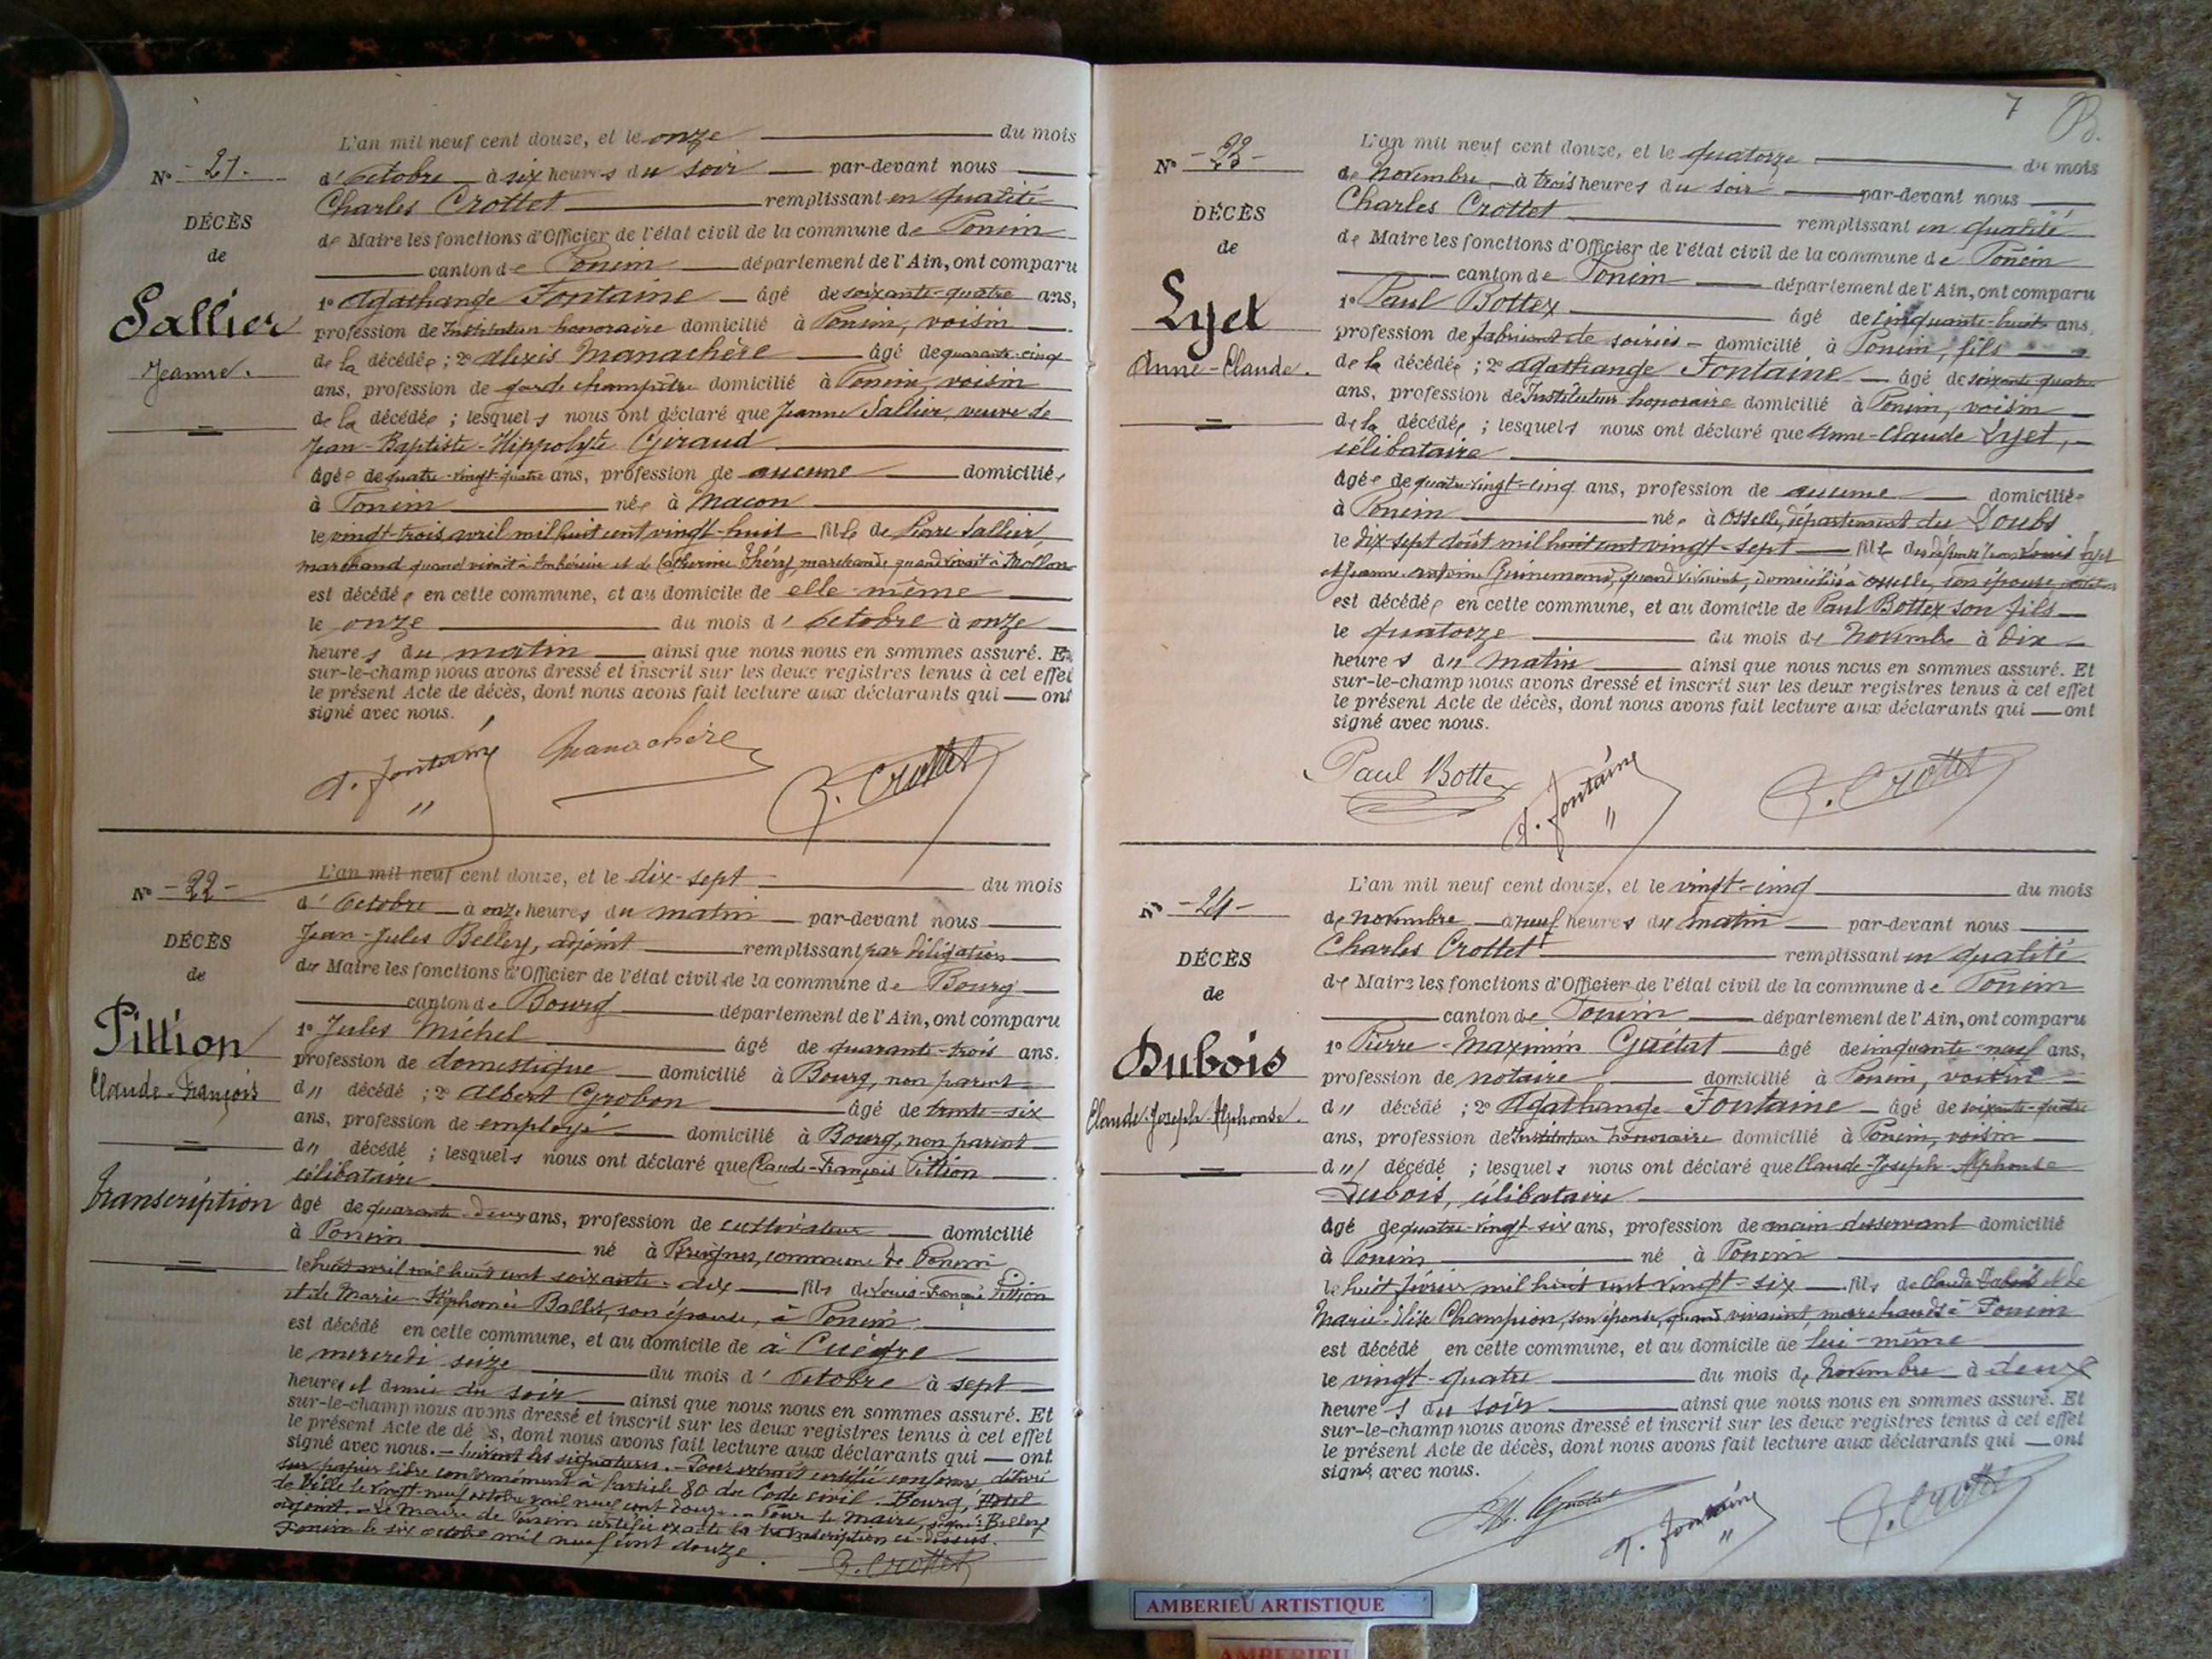 L'an mil neuf cent douze, et le onze du mois
N° - 21 -
d'octobre à six heures du soir par-devant nous
Charles Crottet remplissant en qualité
DÉCÈS
de Maire les fonctions d'Officier de l'état civil de la commune de Poncin
de
canton de Poncin département de l'Ain, ont comparu
Sallier
1° Agathange Fontaine âgé de soixante-quatre ans,
profession de Instituteur honoraire domicilié à Poncin, voisin
Jeanne.
de la décédée ; 2° Alexis Manachère âgé de quarante-cinq
ans, profession de garde champêtre domicilié à Poncin, voisin
de la décédée ; lesquels nous ont déclaré que Jeanne Sallier, veuve de
Jean-Baptiste-Hippolyte Giraud
âgée de quatre-vingt-quatre ans, profession de aucune domiciliée
à Poncin née à Macon
le vingt-trois avril mil huit cent vingt-huit fille de Pierre Sallier,
marchand quand vivait à Ambérieu et de Catherine Théry, marchande quand vivait à Mollon
est décédée en cette commune, et au domicile de elle-même
le onze du mois d'octobre à onze
heures du matin ainsi que nous nous en sommes assuré. Et
sur-le-champ nous avons dressé et inscrit sur les deux registres tenus à cet effet
le présent Acte de décès, dont nous avons fait lecture aux déclarants qui ont
signé avec nous.
A. Fontaine Manachère C. Crottet
L'an mil neuf cent douze, et le dix-sept du mois
N° - 22 -
d'octobre à onze heures du matin par-devant nous
Jean-Jules Belley, adjoint remplissant par délégation
DÉCÈS
du Maire les fonctions d'Officier de l'état civil de la commune de Bourg
de
canton de Bourg département de l'Ain, ont comparu
Pittion
1° Jules Michel âgé de quarante-trois ans.
profession de domestique domicilié à Bourg, non parent
Claude-François
du décédé ; 2° Albert Grobon âgé de trente-six
ans, profession de employé domicilié à Bourg, non parent
du décédé ; lesquels nous ont déclaré que Claude-François Pittion
célibataire
Transcription
âgé de quarante-deux ans, profession de cultivateur domicilié
à Poncin né à Breignes, commune de Poncin
le huit avril mil huit cent soixante-dix fils de Louis-François Pittion
et de Marie-Stéphanie Ballet, son épouse, à Poncin
est décédé en cette commune, et au domicile de à Cuègre
le mercredi seize du mois d'octobre à sept
heures et demie du soir ainsi que nous nous en sommes assuré. Et
sur-le-champ nous avons dressé et inscrit sur les deux registres tenus à cet effet
le présent Acte de décès, dont nous avons fait lecture aux déclarants qui ont
signé avec nous. - Suivent les signatures. - Pour extrait certifié conforme délivré
sur papier libre conformément à l'article 80 du Code civil. Bourg, Hôtel
de Ville le vingt-neuf octobre mil neuf cent douze. - Pour le maire, signé: Belley
adjoint. - Le Maire de Poncin certifie exacte la transcription ci-dessus.
Poncin le six octobre mil neuf cent douze. C. Crottet
7 B.
L'an mil neuf cent douze, et le quatorze du mois
N° - 23 -
de Novembre à trois heures du soir par-devant nous
Charles Crottet remplissant en qualité
DÉCÈS
de Maire les fonctions d'Officier de l'état civil de la commune de Poncin
de
canton de Poncin département de l'Ain, ont comparu
Lyet
1° Paul Bottex âgé de cinquante-huit ans.
profession de fabricant de soieries domicilié à Poncin, fils
Anne-Claude.
de la décédée ; 2° Agathange Fontaine âgé de soixante-quatre
ans, profession de Instituteur honoraire domicilié à Poncin, voisin
de la décédée ; lesquels nous ont déclaré que Anne-Claude Lyet,
célibataire
âgée de quatre-vingt-cinq ans, profession de aucune domiciliée
à Poncin née à Osselle, département du Doubs
le dix-sept août mil huit cent vingt-sept fille des défunts Jean Louis Lyet
et Jeanne-Antoine Guinemand, quand vivaient, domiciliés à Osselle, son épouse
est décédée en cette commune, et au domicile de Paul Bottex son fils
le quatorze du mois de Novembre à dix
heures du matin ainsi que nous nous en sommes assuré. Et
sur-le-champ nous avons dressé et inscrit sur les deux registres tenus à cet effet
le présent Acte de décès, dont nous avons fait lecture aux déclarants qui ont
signé avec nous.
Paul Bottex A. Fontaine C. Crottet
L'an mil neuf cent douze, et le vingt-cinq du mois
N° - 24 -
de novembre à neuf heures du matin par-devant nous
Charles Crottet remplissant en qualité
DÉCÈS
de Maire les fonctions d'Officier de l'état civil de la commune de Poncin
de
canton de Poncin département de l'Ain, ont comparu
Dubois
1° Pierre-Maximin Guétat âgé de cinquante-neuf ans,
profession de notaire domicilié à Poncin, voisin
Claude-Joseph-Alphonse.
du décédé ; 2° Agathange Fontaine âgé de soixante-quatre
ans, profession de Instituteur honoraire domicilié à Poncin, voisin
du décédé ; lesquels nous ont déclaré que Claude-Joseph-Alphonse
Dubois, célibataire
âgé de quatre-vingt-six ans, profession de desservant domicilié
à Poncin né à Poncin
le huit février mil huit cent vingt-six fils de Claude Dubois et de
Marie-Élise Champion, son épouse, quand vivaient, marchands à Poncin
est décédé en cette commune, et au domicile de lui-même
le vingt-quatre du mois de Novembre à deux
heures du soir ainsi que nous nous en sommes assuré. Et
sur-le-champ nous avons dressé et inscrit sur les deux registres tenus à cet effet
le présent Acte de décès, dont nous avons fait lecture aux déclarants qui ont
signé avec nous.
M. Guétat A. Fontaine C. Crottet
AMBERIEU ARTISTIQUE
AMBERIEU